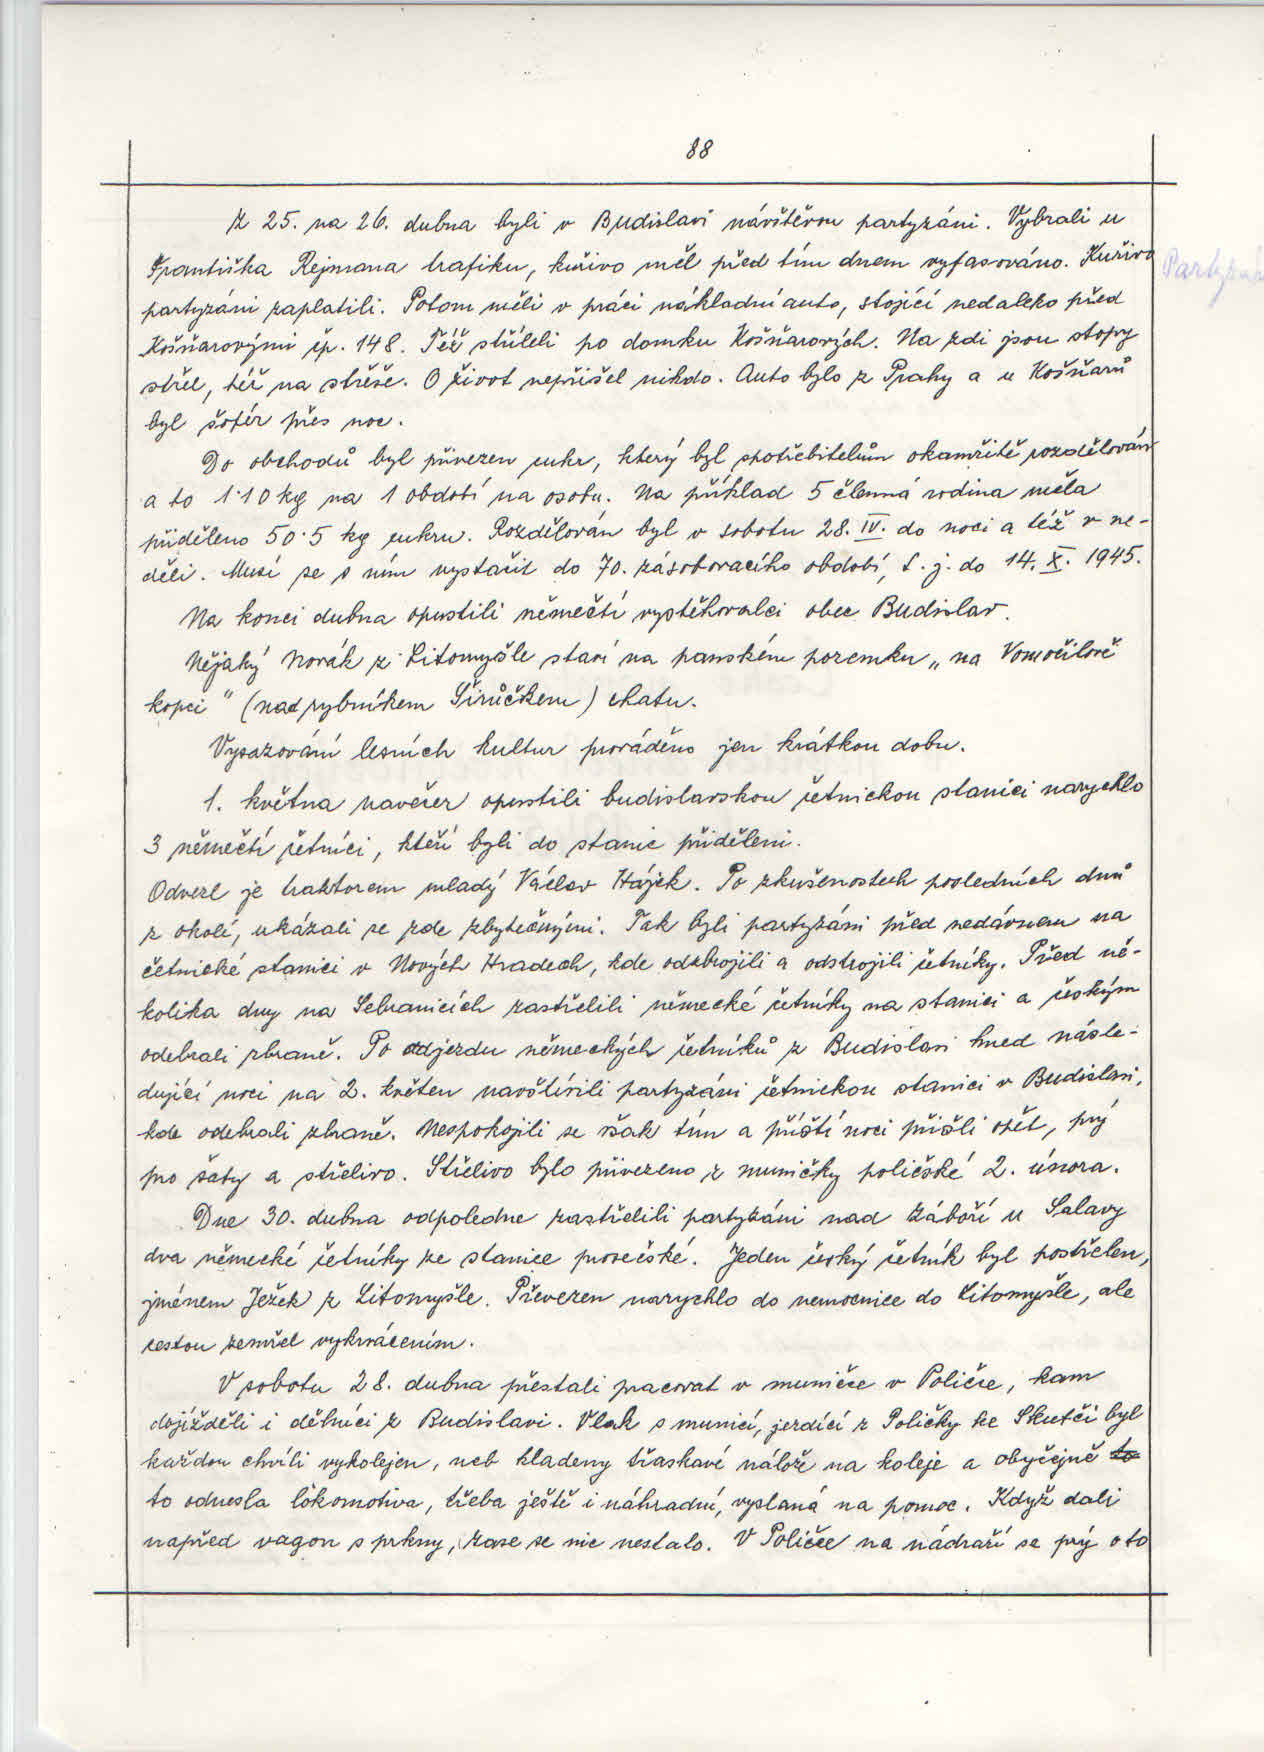 88
Z 25. na 26. dubna byli v Budislavi návštěvou partyzáni. Vybrali u
Františka Rejmana trafiku, kuřivo měl před tím dnem vyfasováno. Kuřivo
Partyzá
partyzáni zaplatili. Potom měli v práci nákladní auto, stojící nedaleko před
Košňarovými čp. 148. Též stříleli po domku Košňarových. Na zdi jsou stopy
střel, též na střeše. O život nepřišel nikdo. Auto bylo z Prahy a u Košňarů
byl šofér přes noc.
Do obchodů byl přivezen cukr, který byl spotřebitelům okamžitě rozdělován
a to 1·10 kg na 1 období na osobu. Na příklad 5 členná rodina měla
přiděleno 50·5 kg cukru. Rozdělován byl v sobotu 28. IV. do noci a též v ne-
děli. Musí se s ním vystačit do 70. zásobovacího období, t. j. do 14. X. 1945.
Na konci dubna opustili němečtí vystěhovalci obec Budislav.
Nějaký Novák z Litomyšle staví na panském pozemku „na Vomočilově
kopci" (nad rybníkem Širůčkem) chatu.
Vysazování lesních kultur prováděno jen krátkou dobu.
1. května navečer opustili budislavskou četnickou stanici narychlo
3 němečtí četníci, kteří byli do stanic přiděleni.
Odvezl je traktorem mladý Václav Hájek. Po zkušenostech posledních dnů
z okolí, ukázali se zde zbytečnými. Tak byli partyzáni před nedávnem na
četnické stanici v Nových Hradech, kde odzbrojili a odstrojili četníky. Před ně-
kolika dny na Sebranicích zastřelili německé četníky na stanici a českým
odebrali zbraně. Po odjezdu německých četníků z Budislavi hned násle-
dující noci na 2. květen navštívili partyzáni četnickou stanici v Budislavi,
kde odebrali zbraně. Nespokojili se však tím a příští noci přišli opět, prý
pro šaty a střelivo. Střelivo bylo přivezeno z muničky poličské 2. února.
Dne 30. dubna odpoledne zastřelili partyzáni nad Záboří u Salavy
dva německé četníky ze stanice prosečské. Jeden český četník byl postřelen,
jménem Ježek z Litomyšle. Převezen narychlo do nemocnice do Litomyšle, ale
cestou zemřel vykrvácením.
V sobotu 28. dubna přestali pracovat v muničce v Poličce, kam
dojížděli i dělníci z Budislavi. Vlak s municí, jezdící z Poličky ke Skutči byl
každou chvíli vykolejen, neb kladeny třaskavé nálože na koleje a obyčejně to
to odnesla lokomotiva, třeba ještě i náhradní, vyslaná na pomoc. Když dali
napřed vagon s prkny, zase se nic nestalo. V Poličce na nádraží se prý o to